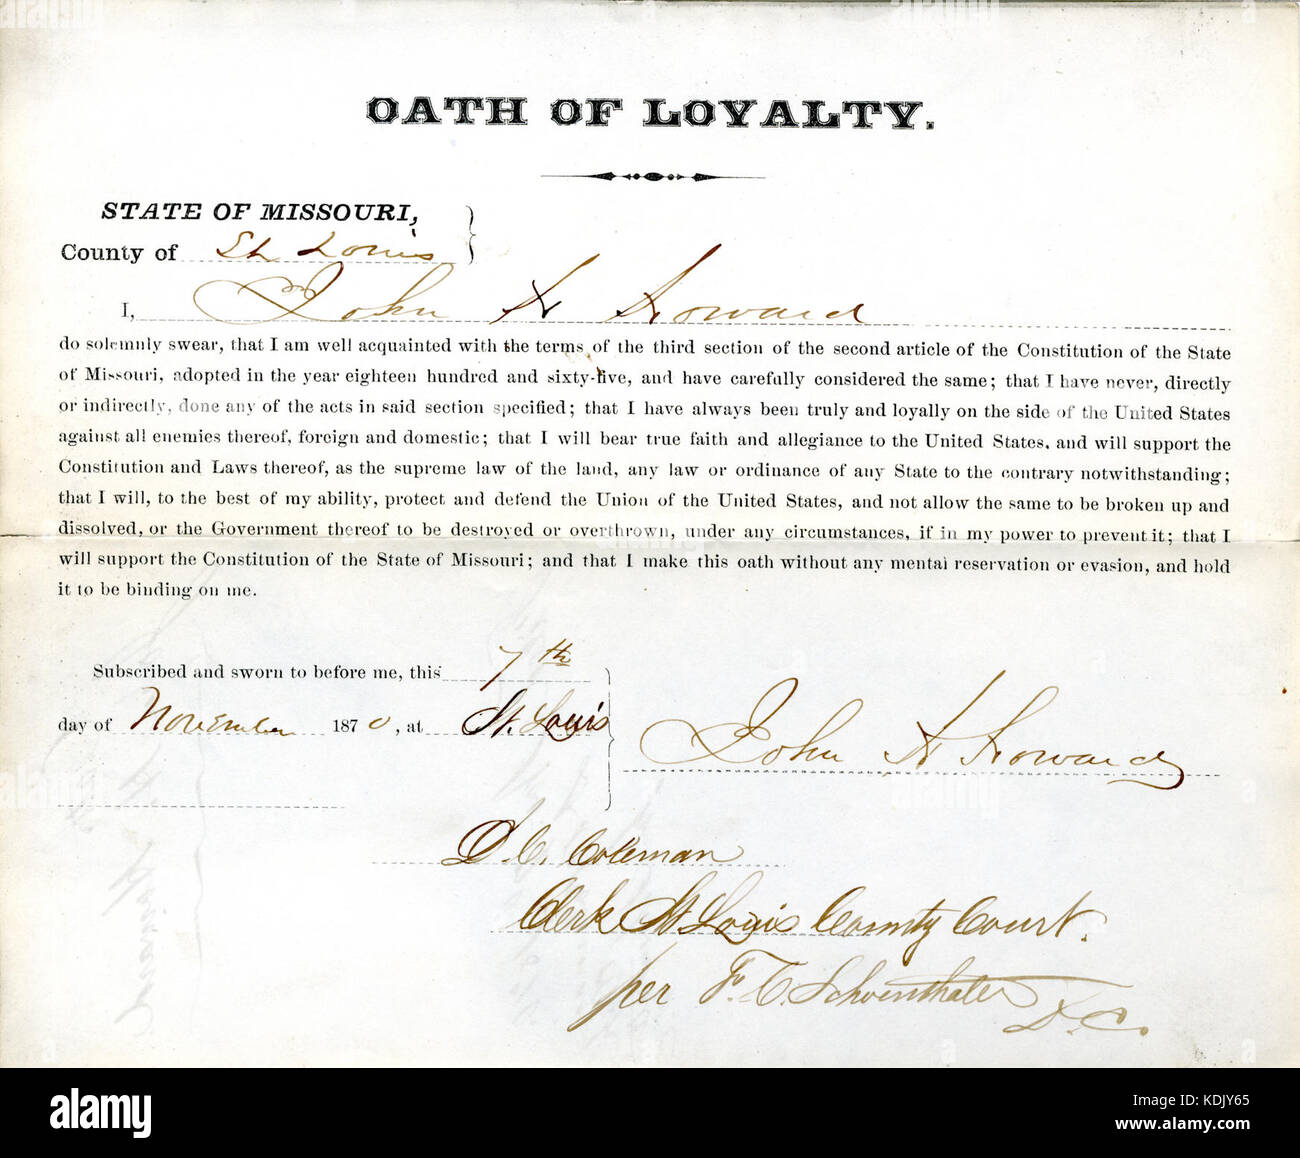 OATH OF LOYALTY.
STATE OF MISSOURI,
County of St Louis
I, John H Howard
do solemnly swear, that I am well acquainted with the terms of the third section of the second article of the Constitution of the State
of Missouri, adopted in the year eighteen hundred and sixty-five, and have carefully considered the same; that I have never, directly
or indirectly, done any of the acts in said section specified; that I have always been truly and loyally on the side of the United States
against all enemies thereof, foreign and domestic; that I will bear true faith and allegiance to the United States, and will support the
Constitution and Laws thereof, as the supreme law of the land, any law or ordinance of any State to the contrary notwithstanding;
that I will, to the best of my ability, protect and defend the Union of the United States, and not allow the same to be broken up and
dissolved, or the Government thereof to be destroyed or overthrown, under any circumstances, if in my power to prevent it; that I
will support the Constitution of the State of Missouri; and that I make this oath without any mental reservation or evasion, and hold
it to be binding on me.
Subscribed and sworn to before me, this 7th
day of November 1870, at St. Louis
John H Howard
D. C. Coleman
Clerk St Louis County Court.
per F. C. Schoenthaler
D.C.
alamy
Image ID: KDJY65
www.alamy.com